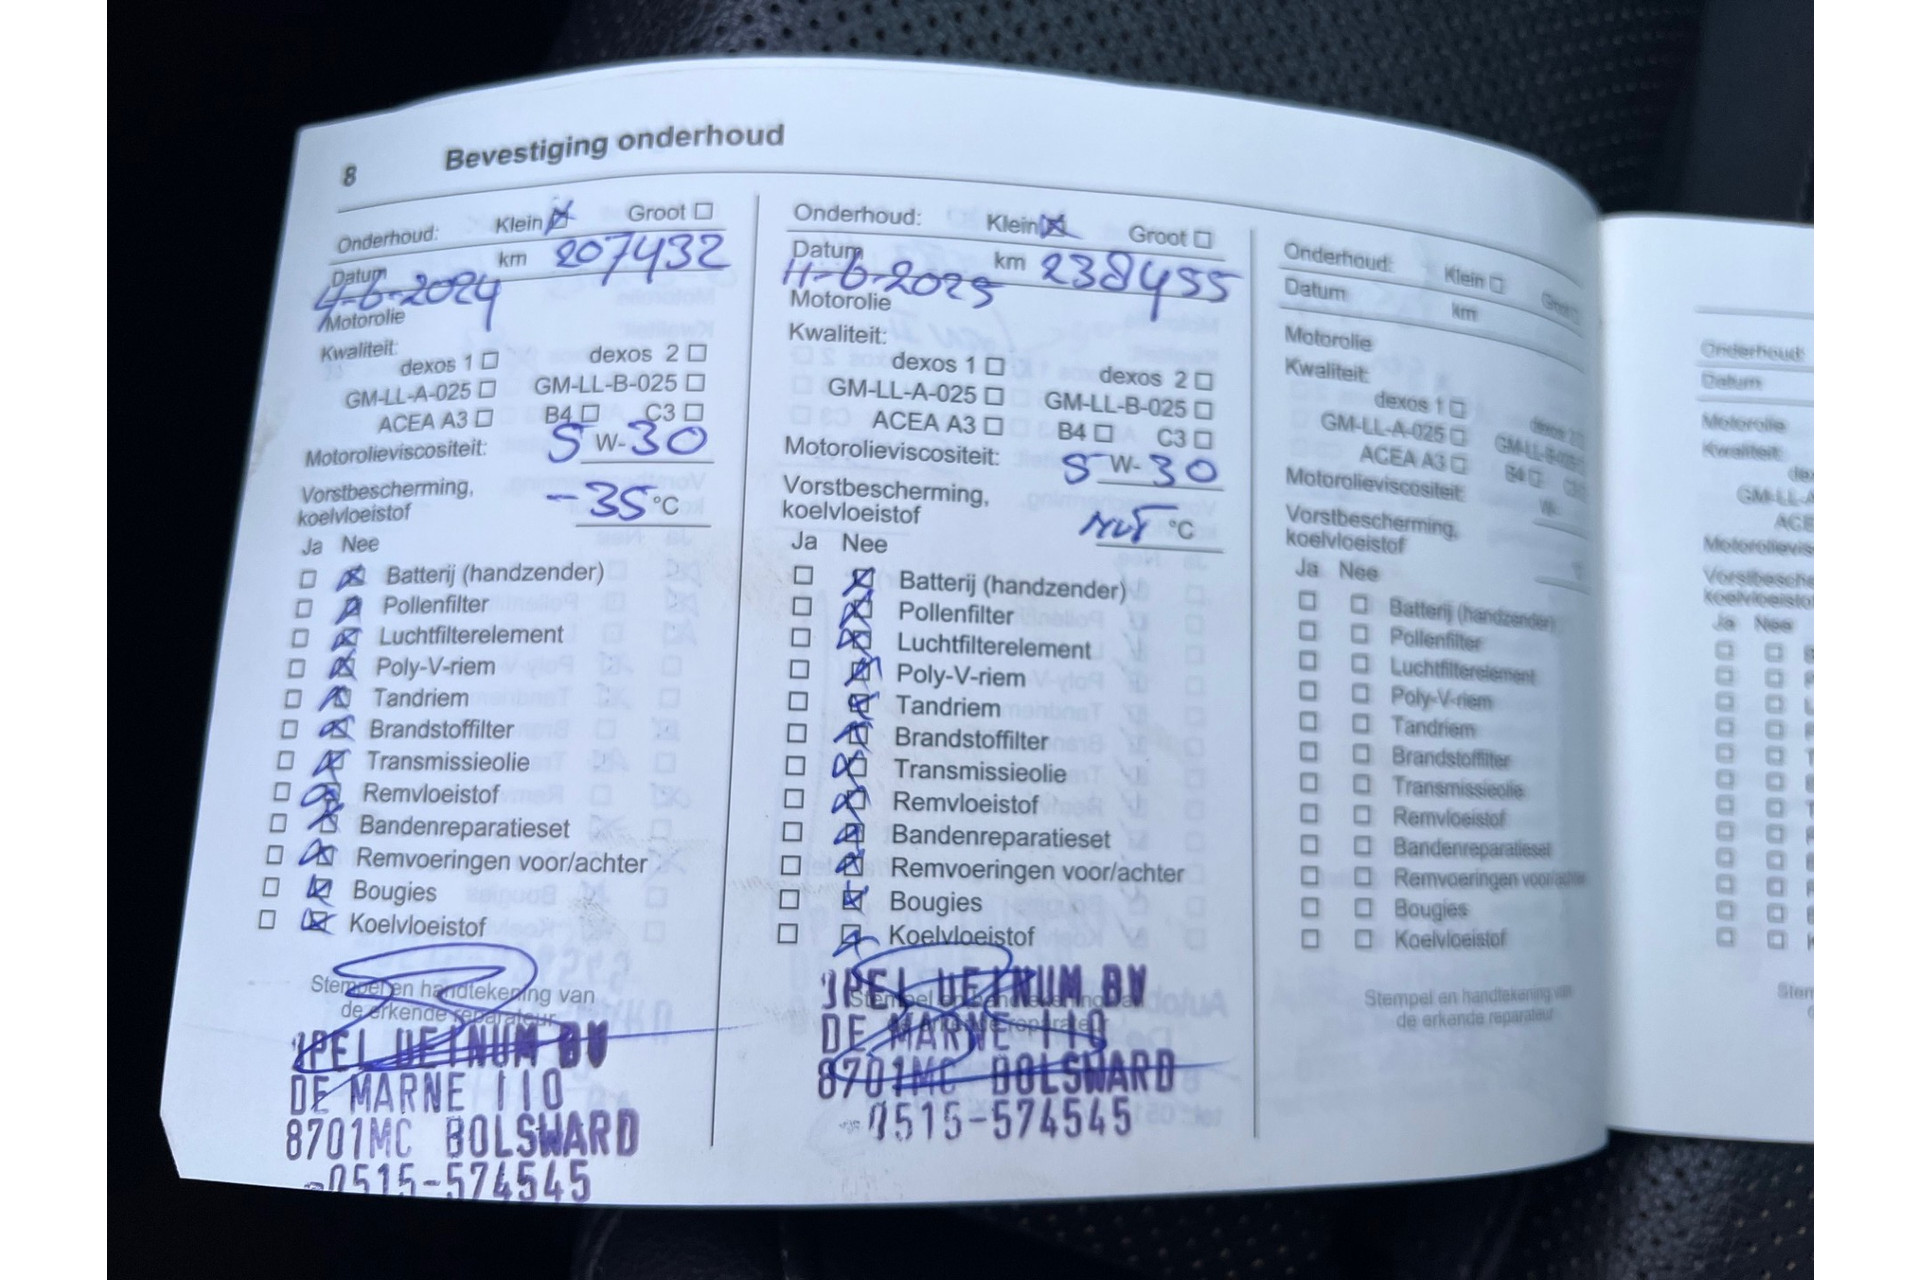 8 Bevestiging onderhoud
Onderhoud: Klein Groot
Datum km 207432
4-6-2024
Motorolie
Kwaliteit:
dexos 1 dexos 2
GM-LL-A-025 GM-LL-B-025
ACEA A3 B4 C3
Motorolieviscositeit: 5 W-30
Vorstbescherming,
koelvloeistof -35 °C
Ja Nee
Batterij (handzender)
Pollenfilter
Luchtfilterelement
Poly-V-riem
Tandriem
Brandstoffilter
Transmissieolie
Remvloeistof
Bandenreparatieset
Remvoeringen voor/achter
Bougies
Koelvloeistof
Stempel en handtekening van
de erkende reparateur
OPEL DEINUM BV
DE MARNE 110
8701MC BOLSWARD
0515-574545
Onderhoud: Klein Groot
Datum km 238455
11-6-2025
Motorolie
Kwaliteit:
dexos 1 dexos 2
GM-LL-A-025 GM-LL-B-025
ACEA A3 B4 C3
Motorolieviscositeit: 5 W-30
Vorstbescherming,
koelvloeistof °C
Ja Nee
Batterij (handzender)
Pollenfilter
Luchtfilterelement
Poly-V-riem
Tandriem
Brandstoffilter
Transmissieolie
Remvloeistof
Bandenreparatieset
Remvoeringen voor/achter
Bougies
Koelvloeistof
Stempel en handtekening van
de erkende reparateur
OPEL DEINUM BV
DE MARNE 110
8701MC BOLSWARD
0515-574545
Onderhoud: Klein Groot
Datum km
Motorolie
Kwaliteit:
dexos 1 dexos 2
GM-LL-A-025 GM-LL-B-025
ACEA A3 B4 C3
Motorolieviscositeit: W-
Vorstbescherming,
koelvloeistof °C
Ja Nee
Batterij (handzender)
Pollenfilter
Luchtfilterelement
Poly-V-riem
Tandriem
Brandstoffilter
Transmissieolie
Remvloeistof
Bandenreparatieset
Remvoeringen voor/achter
Bougies
Koelvloeistof
Stempel en handtekening van
de erkende reparateur
Onderhoud:
Datum
Motorolie
Kwaliteit:
GM-LL-A
Ja Nee